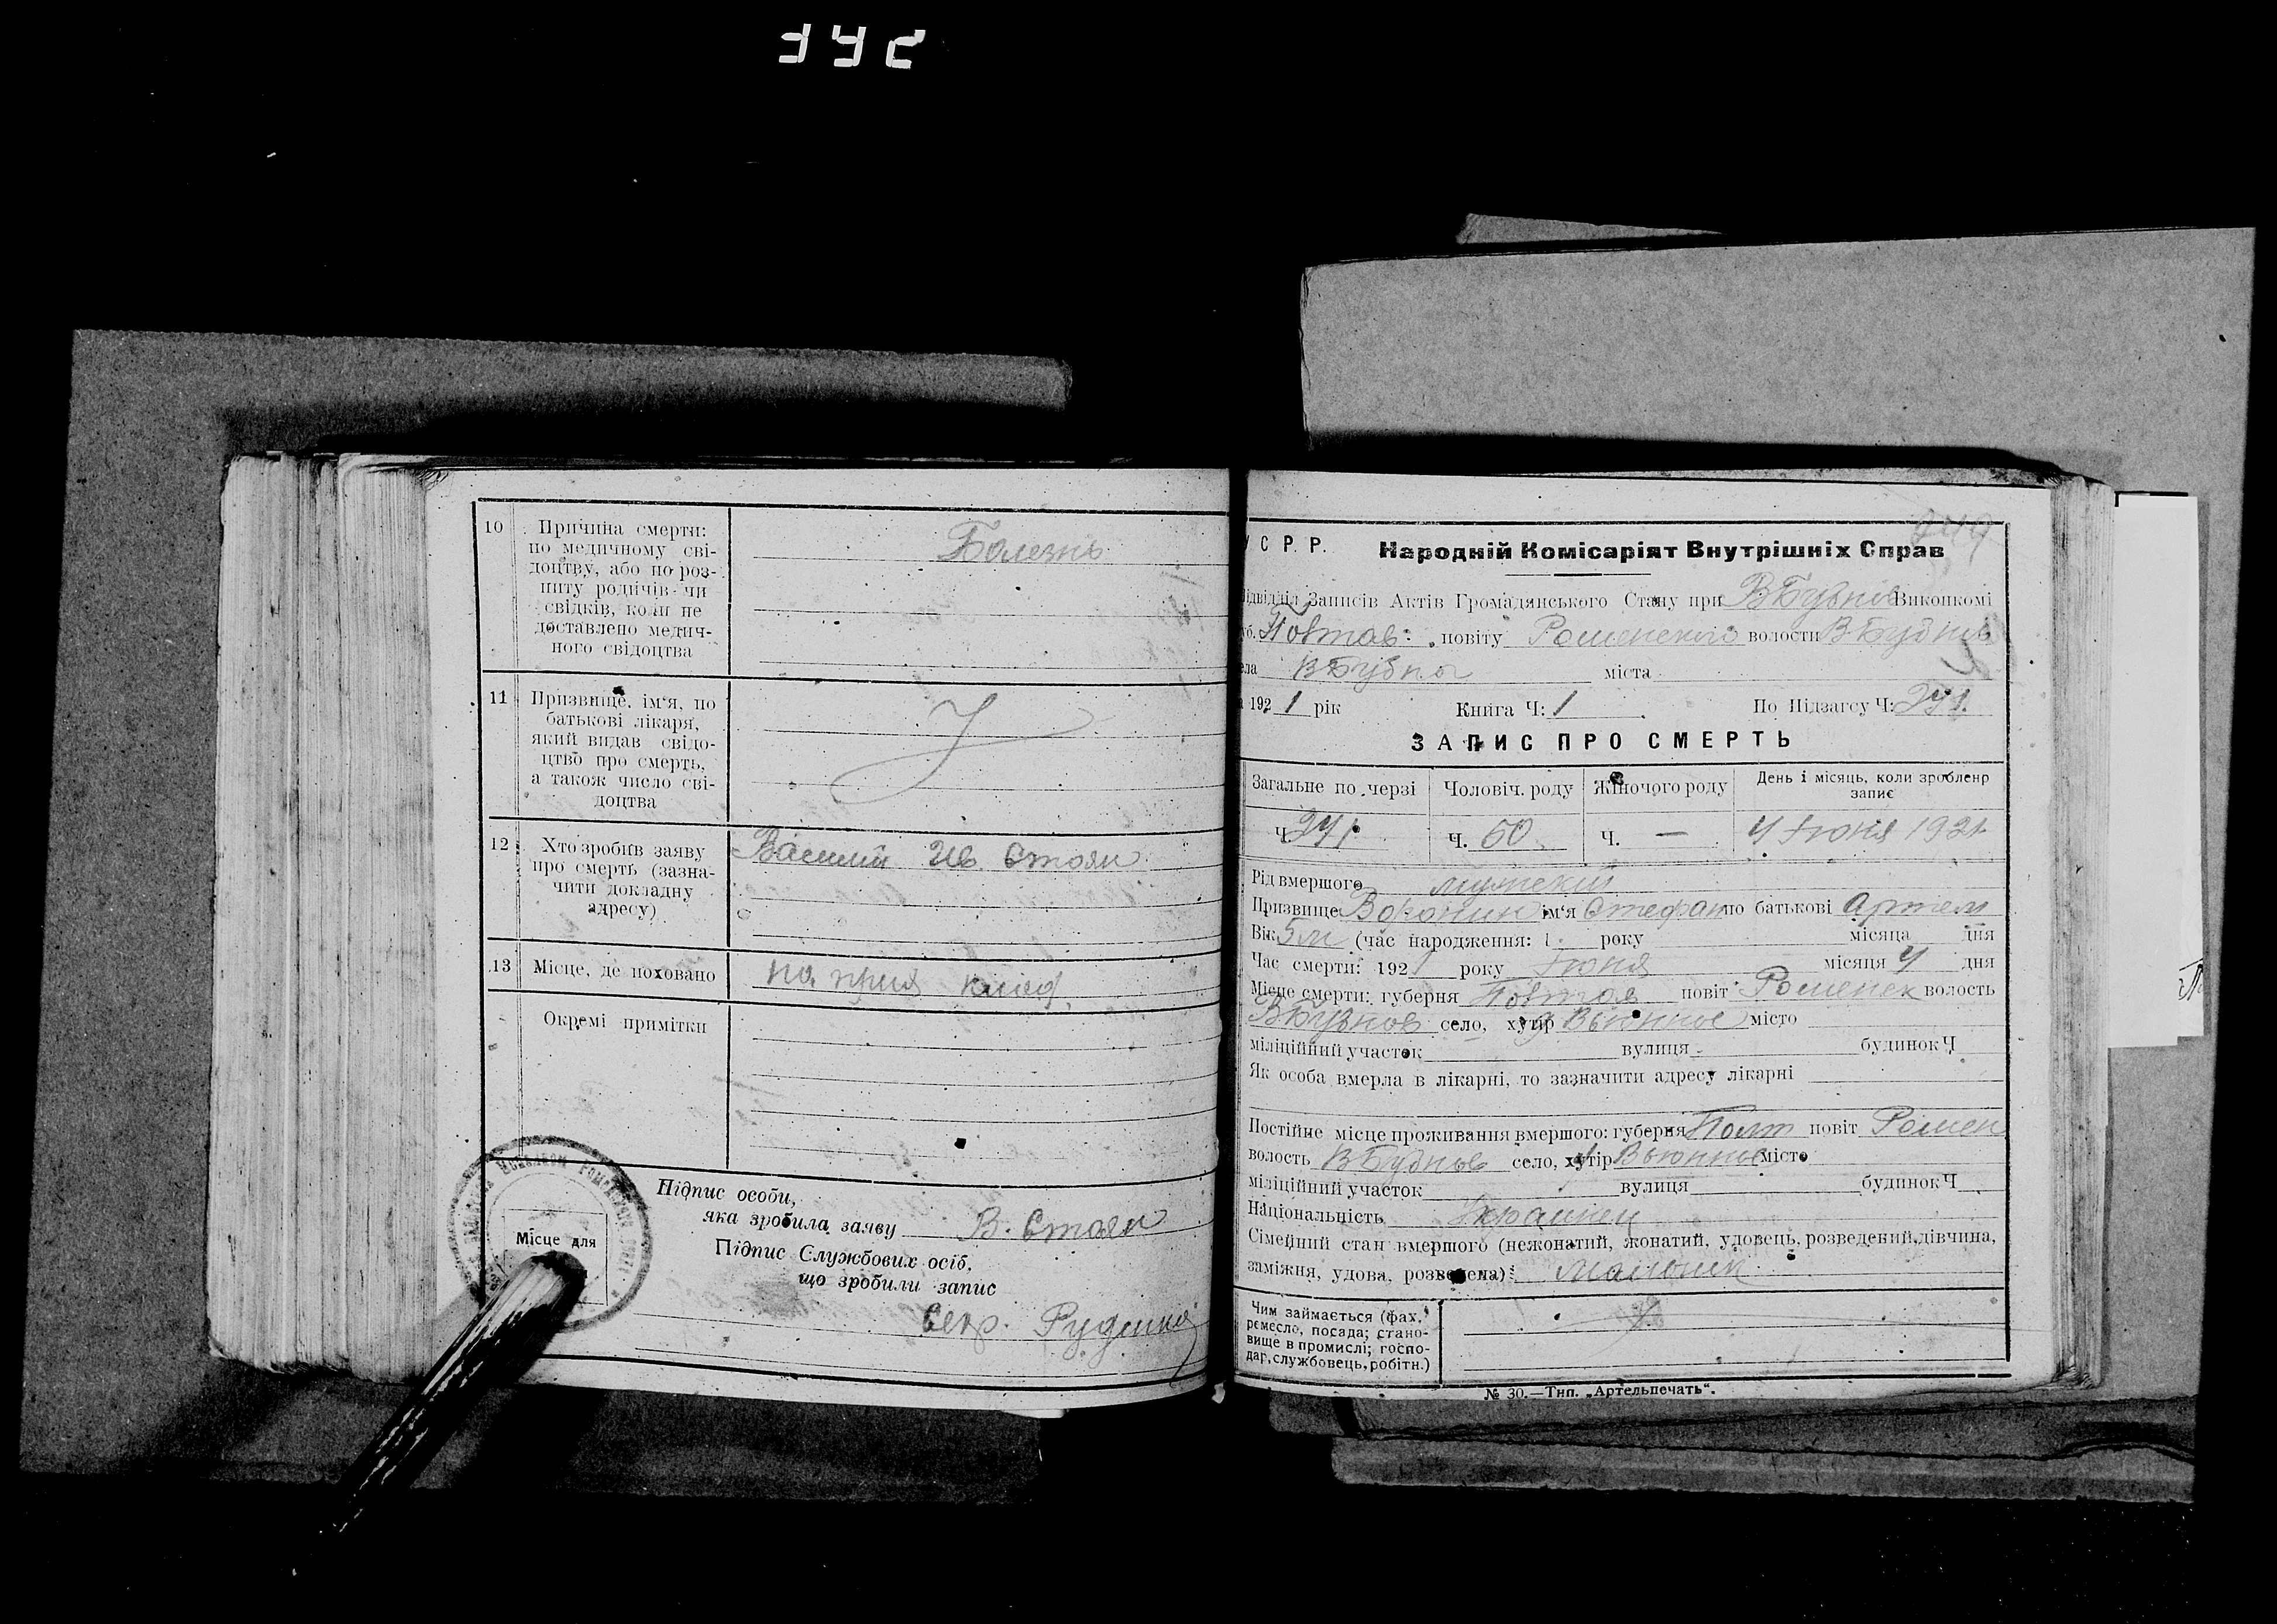 10 Причина смерти:
по медичному сві-
доцтву, або по роз-
питу родичів чи
свідків, коли не
доставлено медич-
ного свідоцтва
Болезнь
11 Призвище, ім'я, по
батькові лікаря,
який видав свідо-
цтво про смерть,
а також число сві-
доцтва
12 Хто зробив заяву
про смерть (зазна-
чити докладну
адресу)
Василий Ив. Стоян
13 Місце, де поховано
на прих клад.
Окремі примітки
Місце для
Підпис особи,
яка зробила заяву В. Стоян
Підпис Службових осіб,
що зробили запис
Секр.
У С Р. Р. Народній Комісаріят Внутрішніх Справ
Підвідділ Записів Актів Громадянського Стану при Виконкомі
повіту Роменского волости В Бубнів
села В Бубны міста
1921 рік Книга Ч: 1 По Підзагсу Ч: 271
ЗАПИС ПРО СМЕРТЬ
Загальне по черзі Чоловіч. роду Жіночого роду День і місяць, коли зроблено
запис
Ч 271 Ч. 50 Ч. — 4 Июня 1921
Рід вмершого мужский
Призвище Воронин ім'я Стефан по батькові Артем
Вік 5 м (час народження: 1 року місяца дня
Час смерти: 1921 року Июня місяця 4 дня
Місце смерти: губерня Повтав повіт Роменск волость
В Бубнов село, хутір Вьюнное місто
міліційний участок вулиця будинок Ч
Як особа вмерла в лікарні, то зазначити адресу лікарні
Постійне місце проживання вмершого: губерня Полт повіт Ромен
волость В Бубнов село, хутір Вьюнное місто
міліційний участок вулиця будинок Ч
Національність Украинец
Сімейний стан вмершого (нежонатий, жонатий, удовець, розведений, дівчина,
заміжня, удова, розведена):
Чим займається (фах,
ремесло, посада; стано-
вище в промислі; госпо-
дар, службовець, робітн.)
№ 30.—Тип. „Артельпечать".